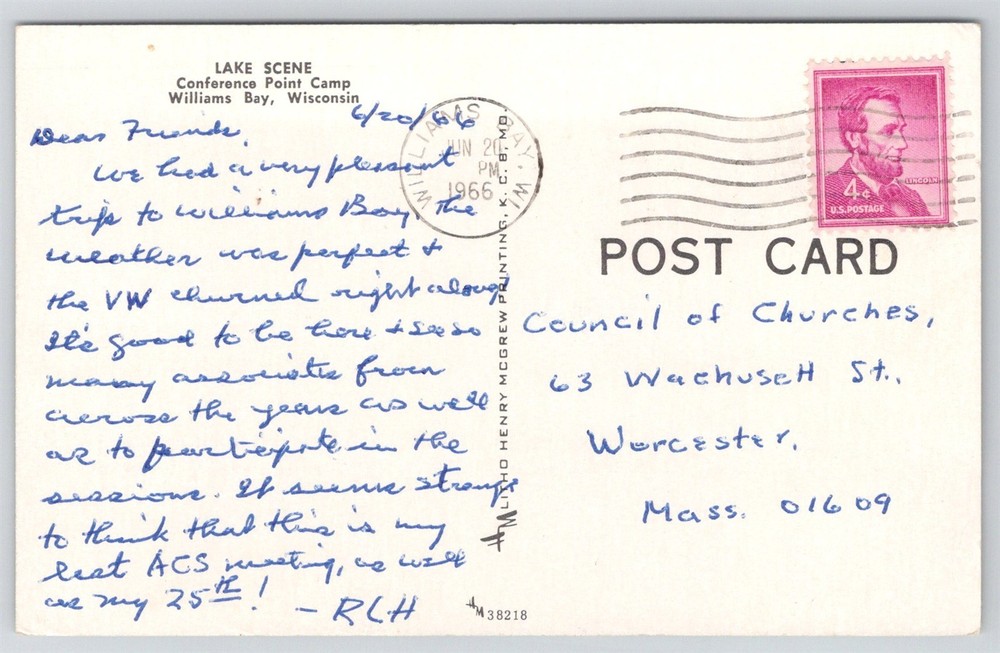 LAKE SCENE
Conference Point Camp
Williams Bay, Wisconsin
6/20/66
Dear Friends,
We had a very pleasant
trip to Williams Bay, the
weather was perfect +
the VW churned right along
It's good to be here + see so
many associates from
across the years as well
as to participate in the
sessions. It seems strange
to think that this is my
last ACS meeting, as well
as my 25th! - RLH
WILLIAMS BAY, WI.
JUN 20
PM
1966
LITHO HENRY MCGREW PRINTING, K. C. 8, MO.
HM
HM 38218
LINCOLN
4¢
U.S. POSTAGE
POST CARD
Council of Churches,
63 Wachusett St.,
Worcester,
Mass. 01609